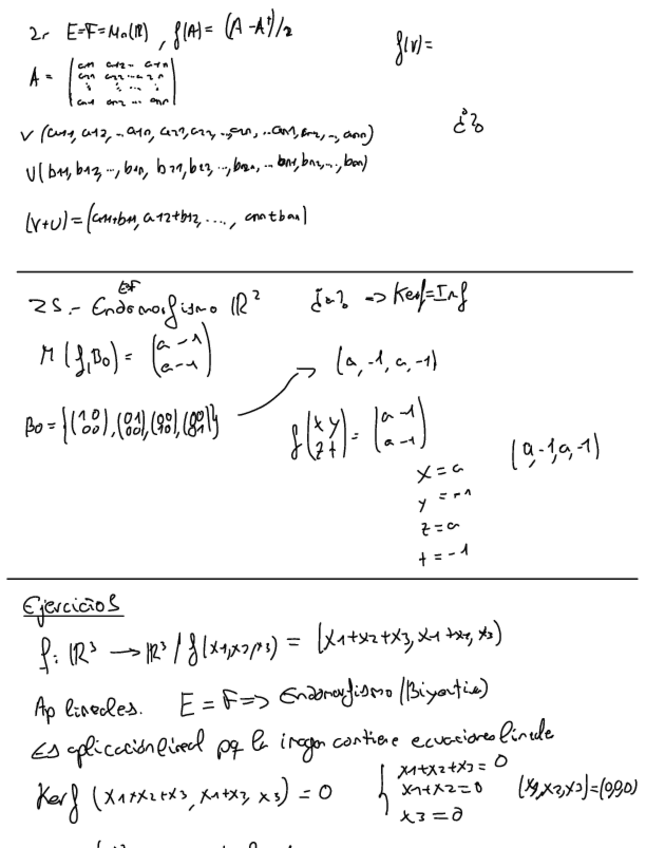 2. E=F=Mn(R), f(A)= (A-Aᵗ)/2
f(v)=
A = (a11 a12... a1n
a21 a22 ... a2n
an1 an2 ... ann)
¿?
V (a11, a12, ... a1n, a21, a22, ..., a2n, ... an1, an2, ..., ann)
U (b11, b12, ..., b1n, b21, b22, ..., b2n, ... bn1, bn2, ..., bnn)
(V+U) = (a11+b11, a12+b12, ...., ann+bnn)
E=F
25.- Endomorfismo R² ¿a? => Kerf=Imf
M(f,B0) = (a -1
a -1)
(a, -1, a, -1)
B0 = {(1 0
0 0), (0 1
0 0), (0 0
1 0), (0 0
0 1)}
f(x y
z t) = (a -1
a -1)
(a, -1, a, -1)
x = a
y = -1
z = a
t = -1
Ejercicios
f: R³ → R³ / f(x1,x2,x3) = (x1+x2+x3, x1+x2, x3)
Ap lineales. E = F => Endomorfismo (Biyectiva)
Es aplicación lineal pq la imagen contiene ecuaciones lineale
Kerf (x1+x2+x3, x1+x2, x3) = 0
{ x1+x2+x3 = 0
x1+x2 = 0
x3 = 0
(x1,x2,x3)=(0,0,0)